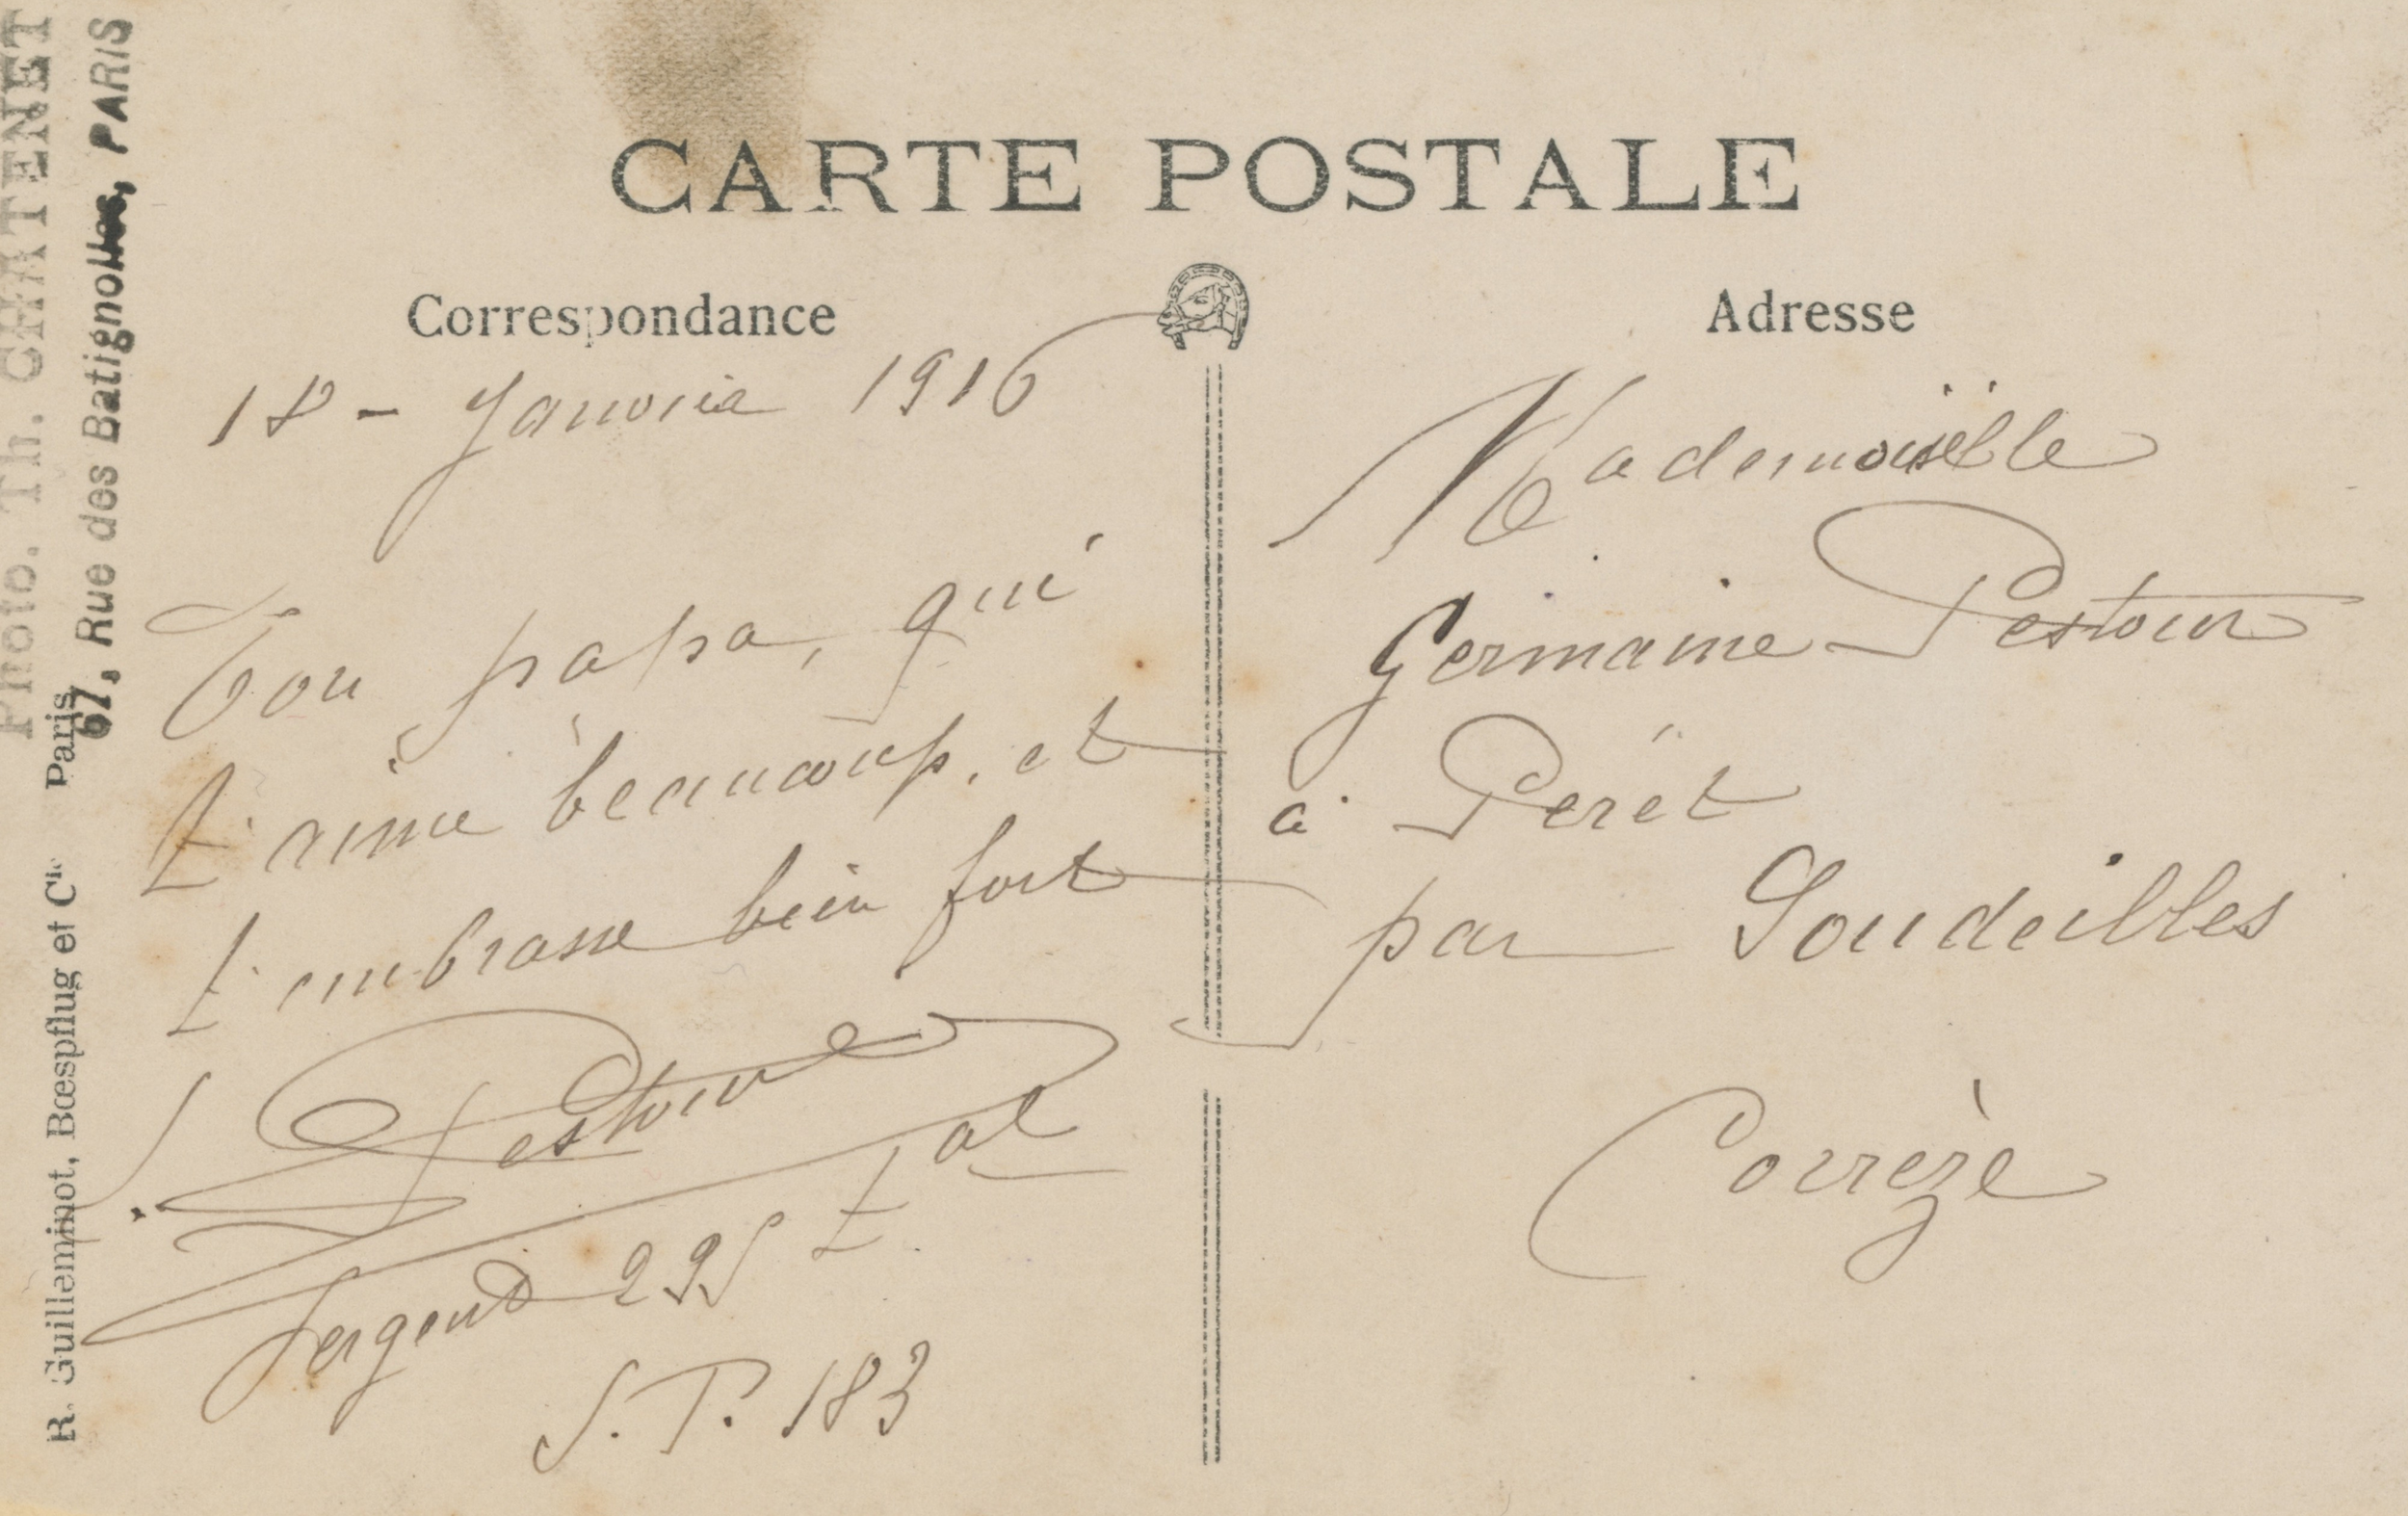 CARTE POSTALE
Correspondance
18 - Janvier 1916
Ton papa, qui
t'aime beaucoup, et
t'embrasse bien fort
Pestour
Sergent 295 t al
S.P. 183
Adresse
Mademoiselle
Germaine Pestour
à Péret
par Soudeilles
Corrèze
Photo. Th. CHATENET
67, Rue des Batignolles, PARIS
R. Guilleminot, Bœspflug et Cie Paris